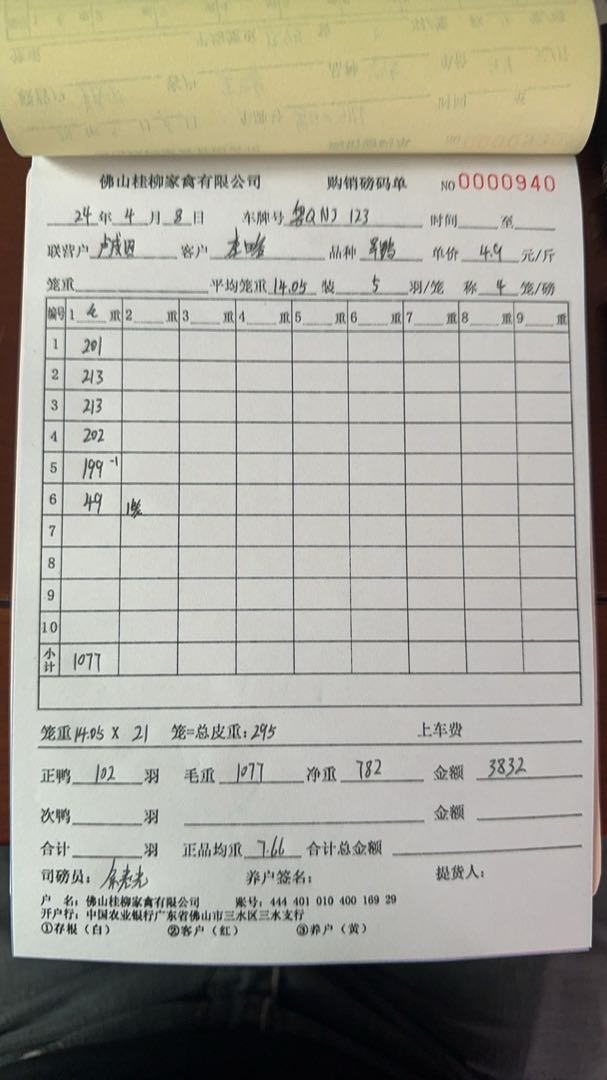 佛山桂柳家禽有限公司 购销磅码单 NO 0000940
24年 4月 8日 车牌号 粤QNJ 123 时间 至
联营户 客户 品种 单价 4.9 元/斤
笼重 平均笼重 14.05 装 5 羽/笼 称 4 笼/磅
编号 1 毛 重 2 重 3 重 4 重 5 重 6 重 7 重 8 重 9 重
1 201
2 213
3 213
4 202
5 199 -1
6 49
7
8
9
10
小计 1077
笼重 14.05 X 21 笼=总皮重: 295 上车费
正鸭 102 羽 毛重 1077 净重 782 金额 3832
次鸭 羽 金额
合计 羽 正品均重 7.66 合计总金额
司磅员: 养户签名: 提货人:
户 名: 佛山桂柳家禽有限公司 账号: 444 401 010 400 169 29
开户行: 中国农业银行广东省佛山市三水区三水支行
①存根(白) ②客户(红) ③养户(黄)